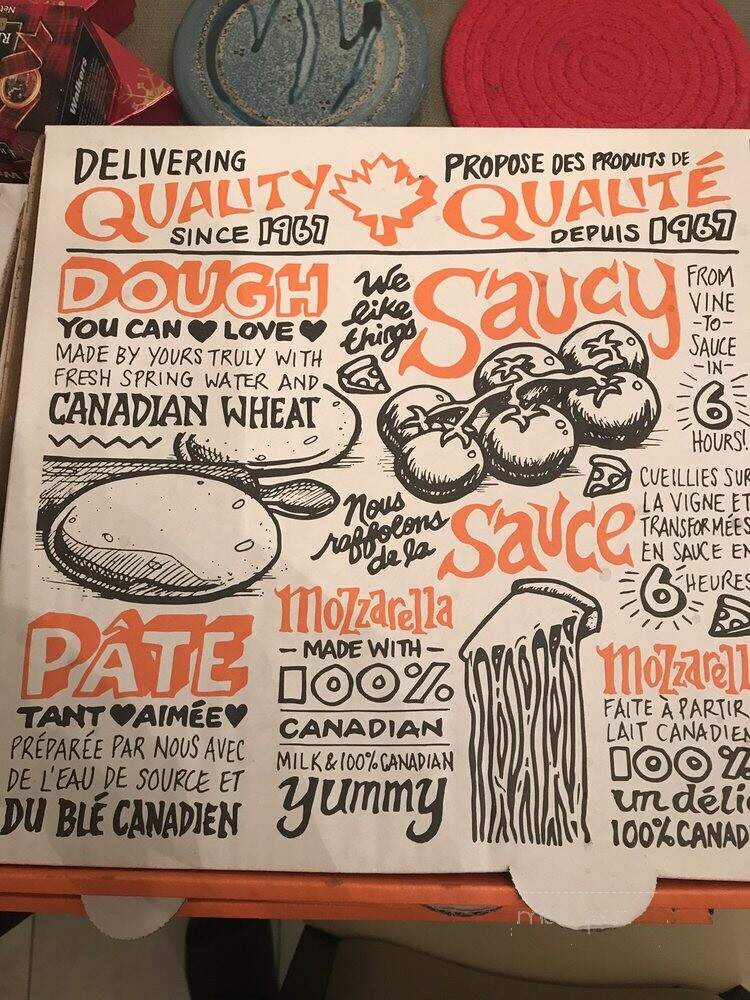 Walkers
DELIVERING
QUALITY
SINCE 1967
PROPOSE DES PRODUITS DE
QUALITÉ
DEPUIS 1967
DOUGH
YOU CAN LOVE
MADE BY YOURS TRULY WITH
FRESH SPRING WATER AND
CANADIAN WHEAT
We
like
things
Saucy
FROM
VINE
-TO-
SAUCE
-IN-
6
HOURS!
Nous
raffolons
de la
Sauce
CUEILLIES SUR
LA VIGNE ET
TRANSFORMÉES
EN SAUCE EN
6 HEURES
PÂTE
TANT AIMÉE
PRÉPARÉE PAR NOUS AVEC
DE L'EAU DE SOURCE ET
DU BLÉ CANADIEN
Mozzarella
- MADE WITH -
100%
CANADIAN
MILK & 100% CANADIAN
yummy
Mozzarell
FAITE À PARTIR
LAIT CANADIEN
100%
un déli
100% CANAD